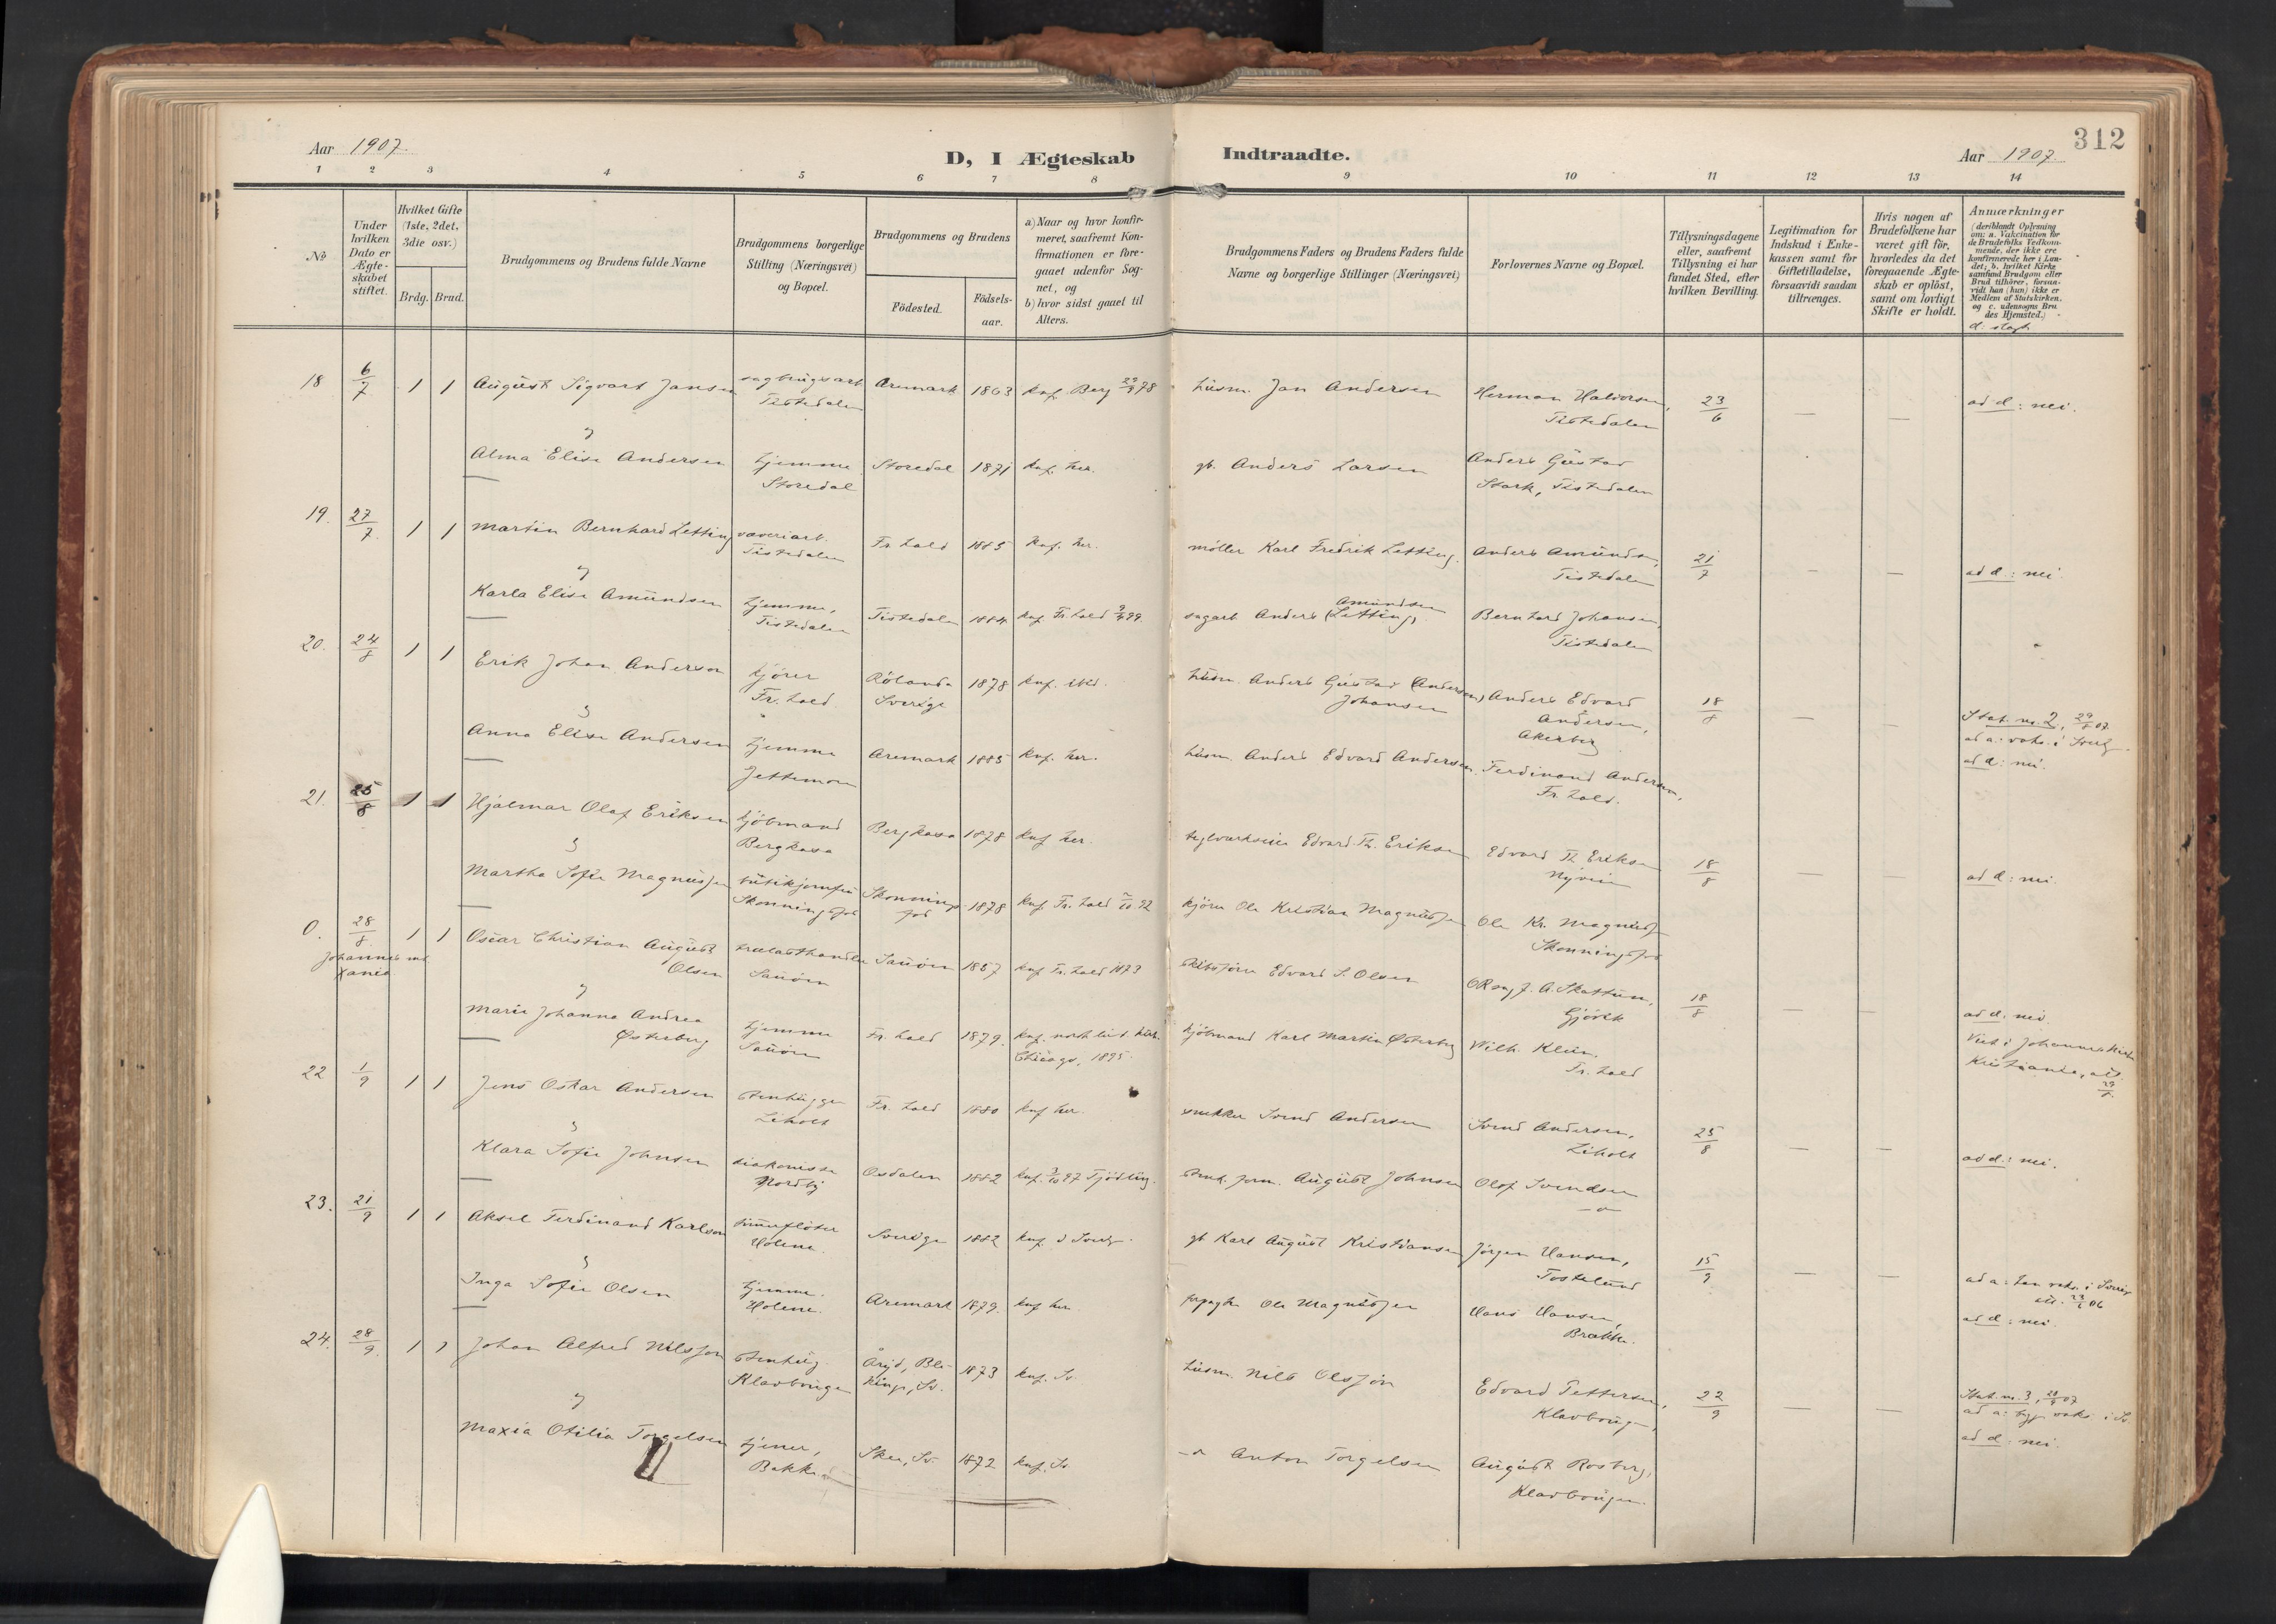 312
Aar 1907.
D, I Ægteskab
Indtraadte.
Aar 1907.
1 2 3 4 5 6 7 8 9 10 11 12 13 14
No
Under hvilken Dato er Ægteskabet stiftet.
Hvilket Gifte (1ste, 2det, 3die osv.)
Brdg. Brud.
Brudgommens og Brudens fulde Navne
Brudgommens borgerlige Stilling (Næringsvei) og Bopæl.
Brudgommens og Brudens
Födested.
Födselsaar.
a) Naar og hvor konfirmeret, saafremt Konfirmationen er foregaaet udenfor Sognet, og
b) hvor sidst gaaet til Alters.
Brudgommens Faders og Brudens Faders fulde
Navne og borgerlige Stillinger (Næringsvei)
Forlovernes Navne og Bopæl.
Tillysningsdagene eller, saafremt Tillysning ei har fundet Sted, efter hvilken Bevilling.
Legitimation for Indskud i Enkekassen samt for Giftetilladelse, forsaavidt saadan tiltrænges.
Hvis nogen af Brudefolkene har været gift før, hvorledes da det foregaaende Ægteskab er oplöst, samt om lovligt Skifte er holdt.
Anmærkninger
(deriblandt Oplysning om: a. Vakcination for de Brudefolks Vedkommende, der ikke ere konfirmerede her i Landet; b. hvilket Kirkesamfund Brudgom eller Brud tilhörer, forsaavidt han (hun) ikke er Medlem af Statskirken, og c. udensogns Brudes Hjemsted.)
d. slegt
18 6/7 1 1 August Sigvart Jansen sagbrugsarb. Tistedalen Aremark 1863 knf. Berg 29/9 78 husm. Jan Andersen Herman Halvorsen, Tistedalen 23/6 — — ad d: nei.
Alma Elise Andersen hjemme Storedal Storedal 1871 knf. her. gb. Anders Larsen Anders Gustav Stark, Tistedalen
19. 27/7 1 1 Martin Bernhard Letting væveriarb. Tistedalen Fr.hald 1885 knf. her. möller Karl Fredrik Letting. Anders Amundsen, Tistedalen 21/7 — — ad d.: nei.
Karla Elise Amundsen hjemme, Tistedalen Tistedalen 1884 knf Fr.hald 99. sagarb Anders Amundsen (Letting) Bernhard Johansen, Tistedalen
20. 24/8 1 1 Erik Johan Anderson kjörer Fr.hald Rölanda Sverige 1878 knf. ibid. husm. Anders Gustav (Andersen) Johansen Anders Edvard Andersen, Akerberg 18/8 — — Stat. no. 2, 29/8 07. ad a: vaks. i Sverig. ad d: nei.
Anna Elise Andersen hjemme Jettemoen Aremark 1885 knf. her. husm. Anders Edvard Andersen Ferdinand Andersen, Fr.hald.
21. 25/8 1 1 Hjalmar Olaf Eriksen kjöbmand Bergkasa Bergkasa 1878 knf her. teglværkseier Edvard Th. Eriksen Edvard Th Eriksen Nyveien 18/8 — — ad d: nei.
Martha Sofie Magnussen butikjomfru Skonningsfos Skonningsfos 1878 knf Fr.hald 92 kjörer Ole Kristian Magnussen Ole Kr. Magnussen Skonningsfos
0. 28/8 1 1 Oscar Christian August Olsen trælasthandler Sauöen Sauöen 1857 knf Fr.hald 1873 Edvard S. Olsen ORsagf. A. Skattum, Gjövik 18/8 — — ad d: nei.
Marie Johanna Andrea Østerberg hjemme Sauöen Fr.hald 1879. knf. Chicago, 1895. kjöbmand Karl Martin Østerberg Wilh. Klein. Fr.hald Viet i Johanneskirken Kristiania, att.
22 1/9 1 1 Jens Oskar Andersen stenhugger Liholt Fr.hald 1880 knf her. snekker Svend Andersen Svend Andersen, Liholt 25/8 — — ad d: nei.
Klara Sofie Johnsen diakonisse Nordby Osdalen 1882 knf. 3/10 97 Tjödling. August Johnsen Olof Svendsen
23. 21/9 1 1 Aksel Ferdinand Karlson tömmerfløter Holene. Sverige 1882 knf i Sverig. gb Karl August Kristiansen Jörgen Hansen, Tostelund 15/9 — — ad a: han vaks. i Sverig att. 06 ad d: nei.
Inga Sofie Olsen hjemme. Holene. Aremark 1879. knf her. Ole Magnussen Hans Hansen, Brække.
24. 28/9 1 1 Johan Alfred Nilsson stenhug. Klavbrugen Åryd, Blekinge, Sv. 1873 knf. Sv. husm. Nils Olsson Edvard Pettersen, Klavbrug. 22/9 — — Stat. no. 3, 28/9 07 ad a: begge vaks. i Sv. ad d: nei.
Maxia Otilia Torgelsen tjener, Bakke Skee, Sv. 1872 knf. Sv. Anton Torgelsen August Rosberg, Klavbrugen.